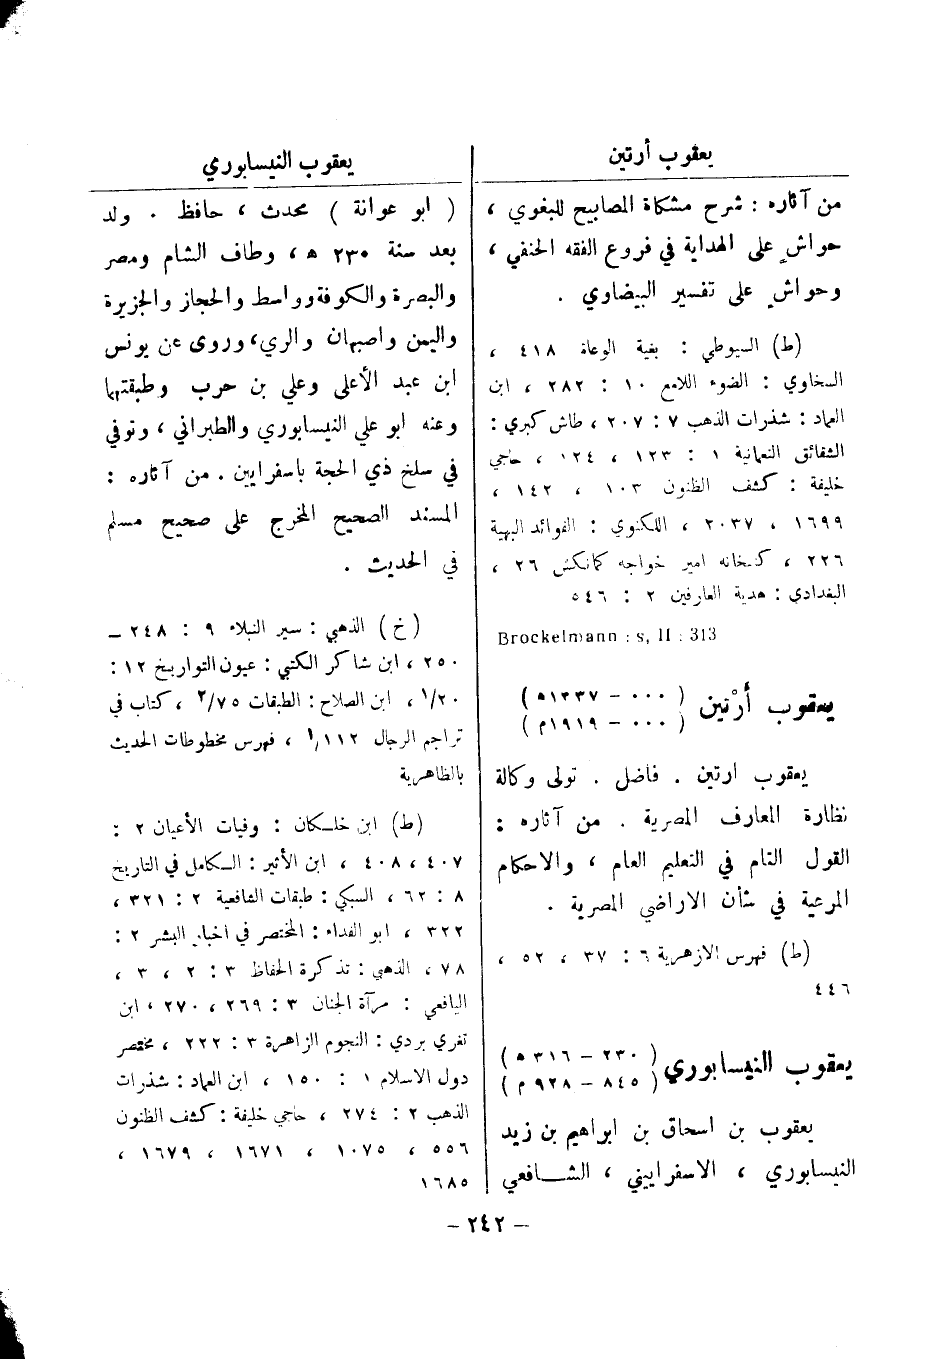 يعقوب أرتين
من آثاره : شرح مشكاة المصابيح للبغوي ،
حواشٍ على الهداية في فروع الفقه الحنفي ،
وحواشٍ على تفسير البيضاوي .
(ط) السيوطي : بغية الوعاة ٤١٨ ،
السخاوي : الضوء اللامع ١٠ : ٢٨٢ ، ابن
العماد : شذرات الذهب ٧ : ٢٠٧ ، طاش كبري :
الشقائق النعمانية ١ : ١٢٣ ، ١٢٤ ، حاجي
خليفة : كشف الظنون ١٠٣ ، ١٤٢ ،
١٦٩٩ ، ٢٠٣٧ ، اللكنوي : الفوائد البهية
٢٢٦ ، كتبخانه امير خواجه كمانكش ٢٦ ،
البغدادي : هدية العارفين ٢ : ٥٤٦
Brockelmann : s, II : 313
يعقوب أرْتين ( ٠٠٠ - ١٣٣٧ ه )
( ٠٠٠ - ١٩١٩ م )
يعقوب ارتين . فاضل . تولى وكالة
نظارة المعارف المصرية . من آثاره :
القول التام في التعليم العام ، والاحكام
المرعية في شأن الاراضي المصرية .
(ط) فهرس الازهرية ٦ : ٣٧ ، ٥٢ ،
٤٤٦
يعقوب النيسابوري ( ٢٣٠ - ٣١٦ ه )
( ٨٤٥ - ٩٢٨ م )
يعقوب بن اسحاق بن ابراهيم بن زيد
النيسابوري ، الاسفراييني ، الشافعي
يعقوب النيسابوري
( ابو عوانة ) محدث ، حافظ . ولد
بعد سنة ٢٣٠ ه ، وطاف الشام ومصر
والبصرة والكوفة وواسط والحجاز والجزيرة
واليمن واصبهان والري ، وروى عن يونس
ابن عبد الأعلى وعلي بن حرب وطبقتهما
وعنه ابو علي النيسابوري والطبراني ، وتوفي
في سلخ ذي الحجة باسفرايين . من آثاره :
المسند الصحيح المخرج على صحيح مسلم
في الحديث .
(خ) الذهبي : سير النبلاء ٩ : ٢٤٨ -
٢٥٠ ، ابن شاكر الكتبي : عيون التواريخ ١٢ :
١/٢٠ ، ابن الصلاح : الطبقات ٢/٧٥ ، كتاب في
تراجم الرجال ١/١١٢ ، فهرس مخطوطات الحديث
بالظاهرية
(ط) ابن خلكان : وفيات الأعيان ٢ :
٤٠٧ ، ٤٠٨ ، ابن الأثير : الكامل في التاريخ
٨ : ٦٢ ، السبكي : طبقات الشافعية ٢ : ٣٢١ ،
٣٢٢ ، ابو الفداء : المختصر في اخبار البشر ٢ :
٧٨ ، الذهبي : تذكرة الحفاظ ٣ : ٢ ، ٣ ،
اليافعي : مرآة الجنان ٣ : ٢٦٩ ، ٢٧٠ ، ابن
تغري بردي : النجوم الزاهرة ٣ : ٢٢٢ ، مختصر
دول الاسلام ١ : ١٥٠ ، ابن العماد : شذرات
الذهب ٢ : ٢٧٤ ، حاجي خليفة : كشف الظنون
٥٥٦ ، ١٠٧٥ ، ١٦٧١ ، ١٦٧٩ ،
١٦٨٥
- ٢٤٢ -